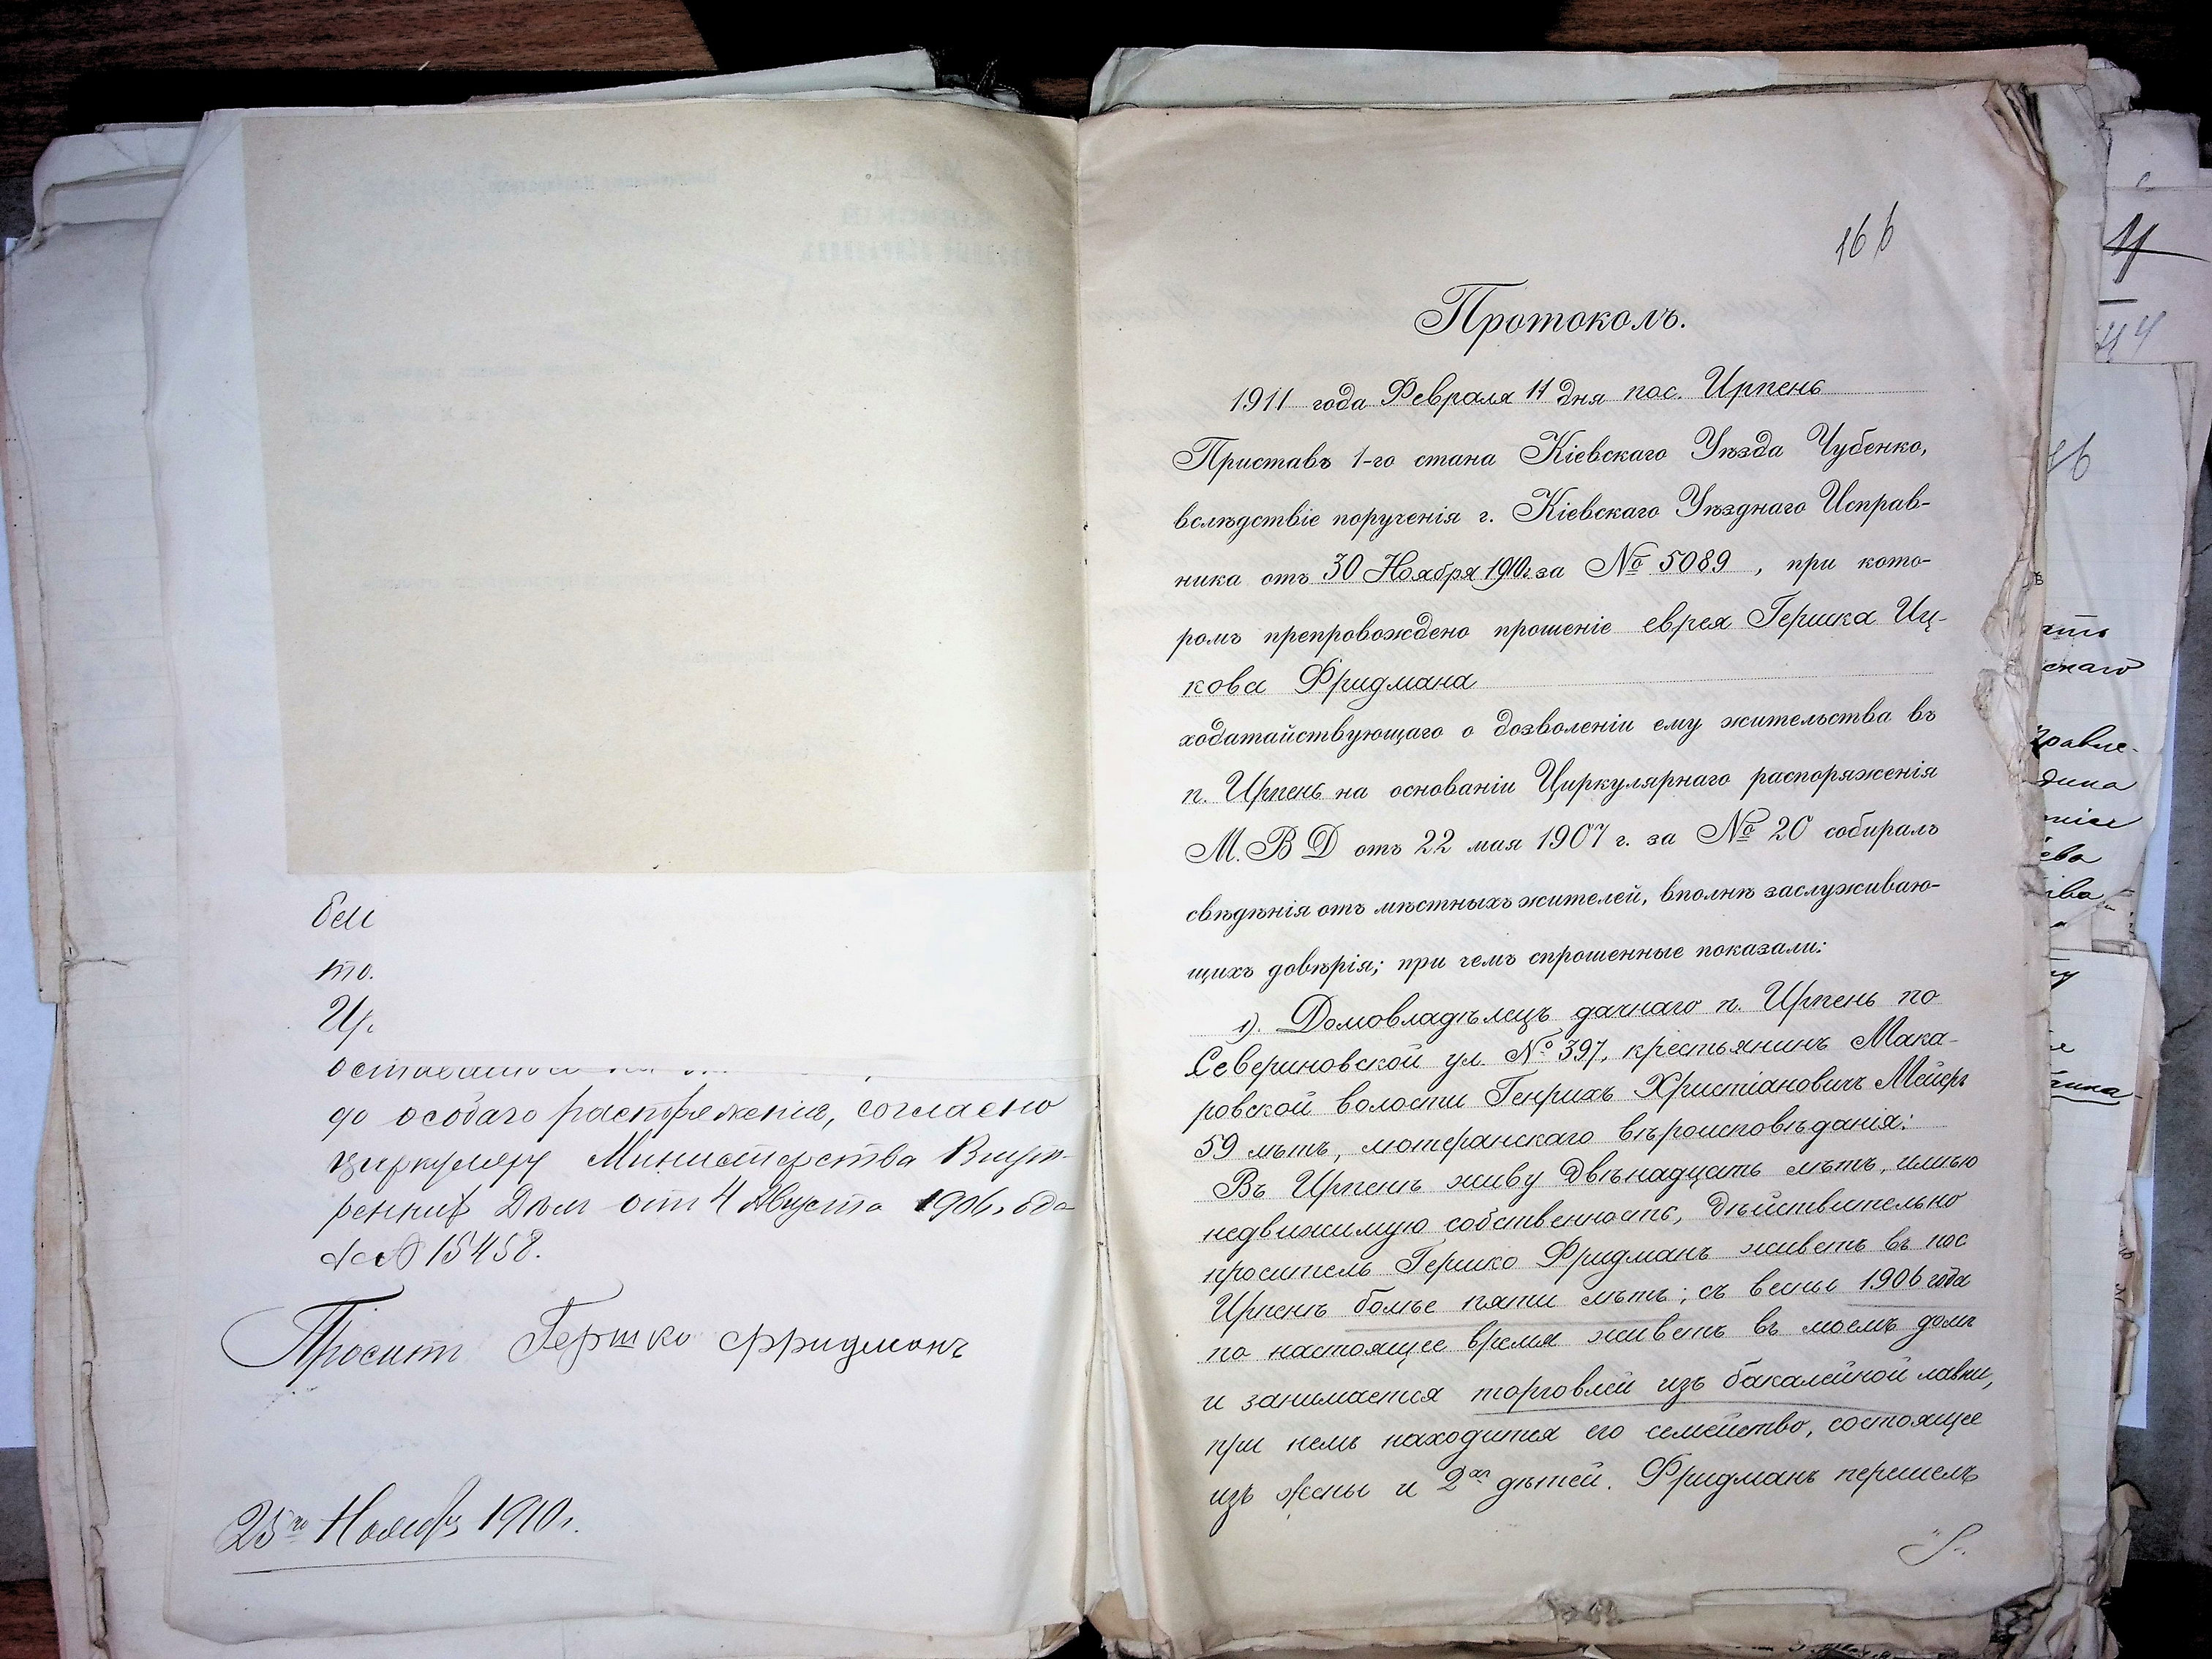 до особаго распоряженія, согласно
циркуляру Министерства Внут-
реннихъ Дѣлъ отъ 4 Августа 1906 года
за № 15458.
Проситъ Гершко Фридманъ
25го Ноября 1910 г.
166
Протоколъ.
1911 года Февраля 11 дня пос. Ирпень
Приставъ 1-го стана Кіевскаго Уѣзда Чубенко,
вслѣдствіе порученія г. Кіевскаго Уѣзднаго Исправ-
ника отъ 30 Ноября 1910 г. за № 5089, при кото-
ромъ препровождено прошеніе еврея Гершка Иц-
кова Фридмана
ходатайствующаго о дозволеніи ему жительства въ
п. Ирпень на основаніи Циркулярнаго распоряженія
М. В Д отъ 22 мая 1907 г. за № 20 собиралъ
свѣдѣнія отъ мѣстныхъ жителей, вполнѣ заслуживаю-
щихъ довѣрія; при чемъ спрошенные показали:
1). Домовладѣлецъ дачнаго п. Ирпень по
Севериновской ул № 397, крестьянинъ Мака-
ровской волости Генрихъ Христіановичъ Мейеръ
59 лѣтъ, лютеранскаго вѣроисповѣданія:
Въ Ирпенѣ живу двѣнадцать лѣтъ, имѣю
недвижимую собственность, дѣйствительно
проситель Гершко Фридманъ живетъ въ пос
Ирпенѣ болѣе пяти лѣтъ; съ весны 1906 года
по настоящее время живетъ въ моемъ домѣ
и занимается торговлей изъ бакалейной лавки,
при немъ находится его семейство, состоящее
изъ жены и 2хъ дѣтей. Фридманъ перешелъ